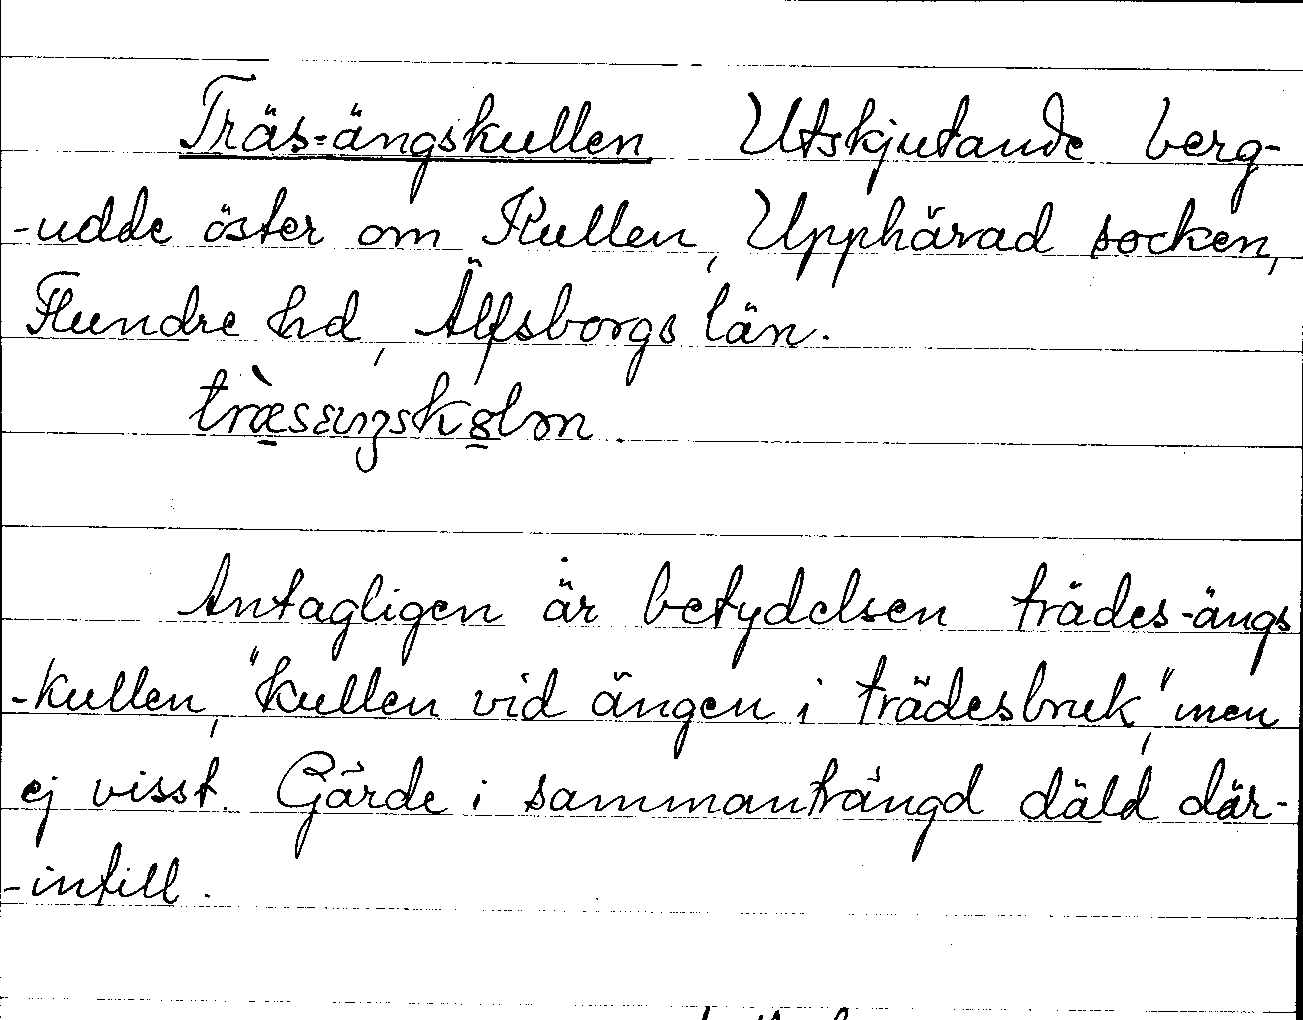 Träs-ängskullen Utskjutande berg-
-udde öster om Kullen, Upphärad socken,
Flundre hd, Älfsborgs län.
Antagligen är betydelsen trädes-ängs
-kullen, "kullen vid ängen i trädesbruk", men
ej visst. Gärde i sammanträngd däld där-
-intill.